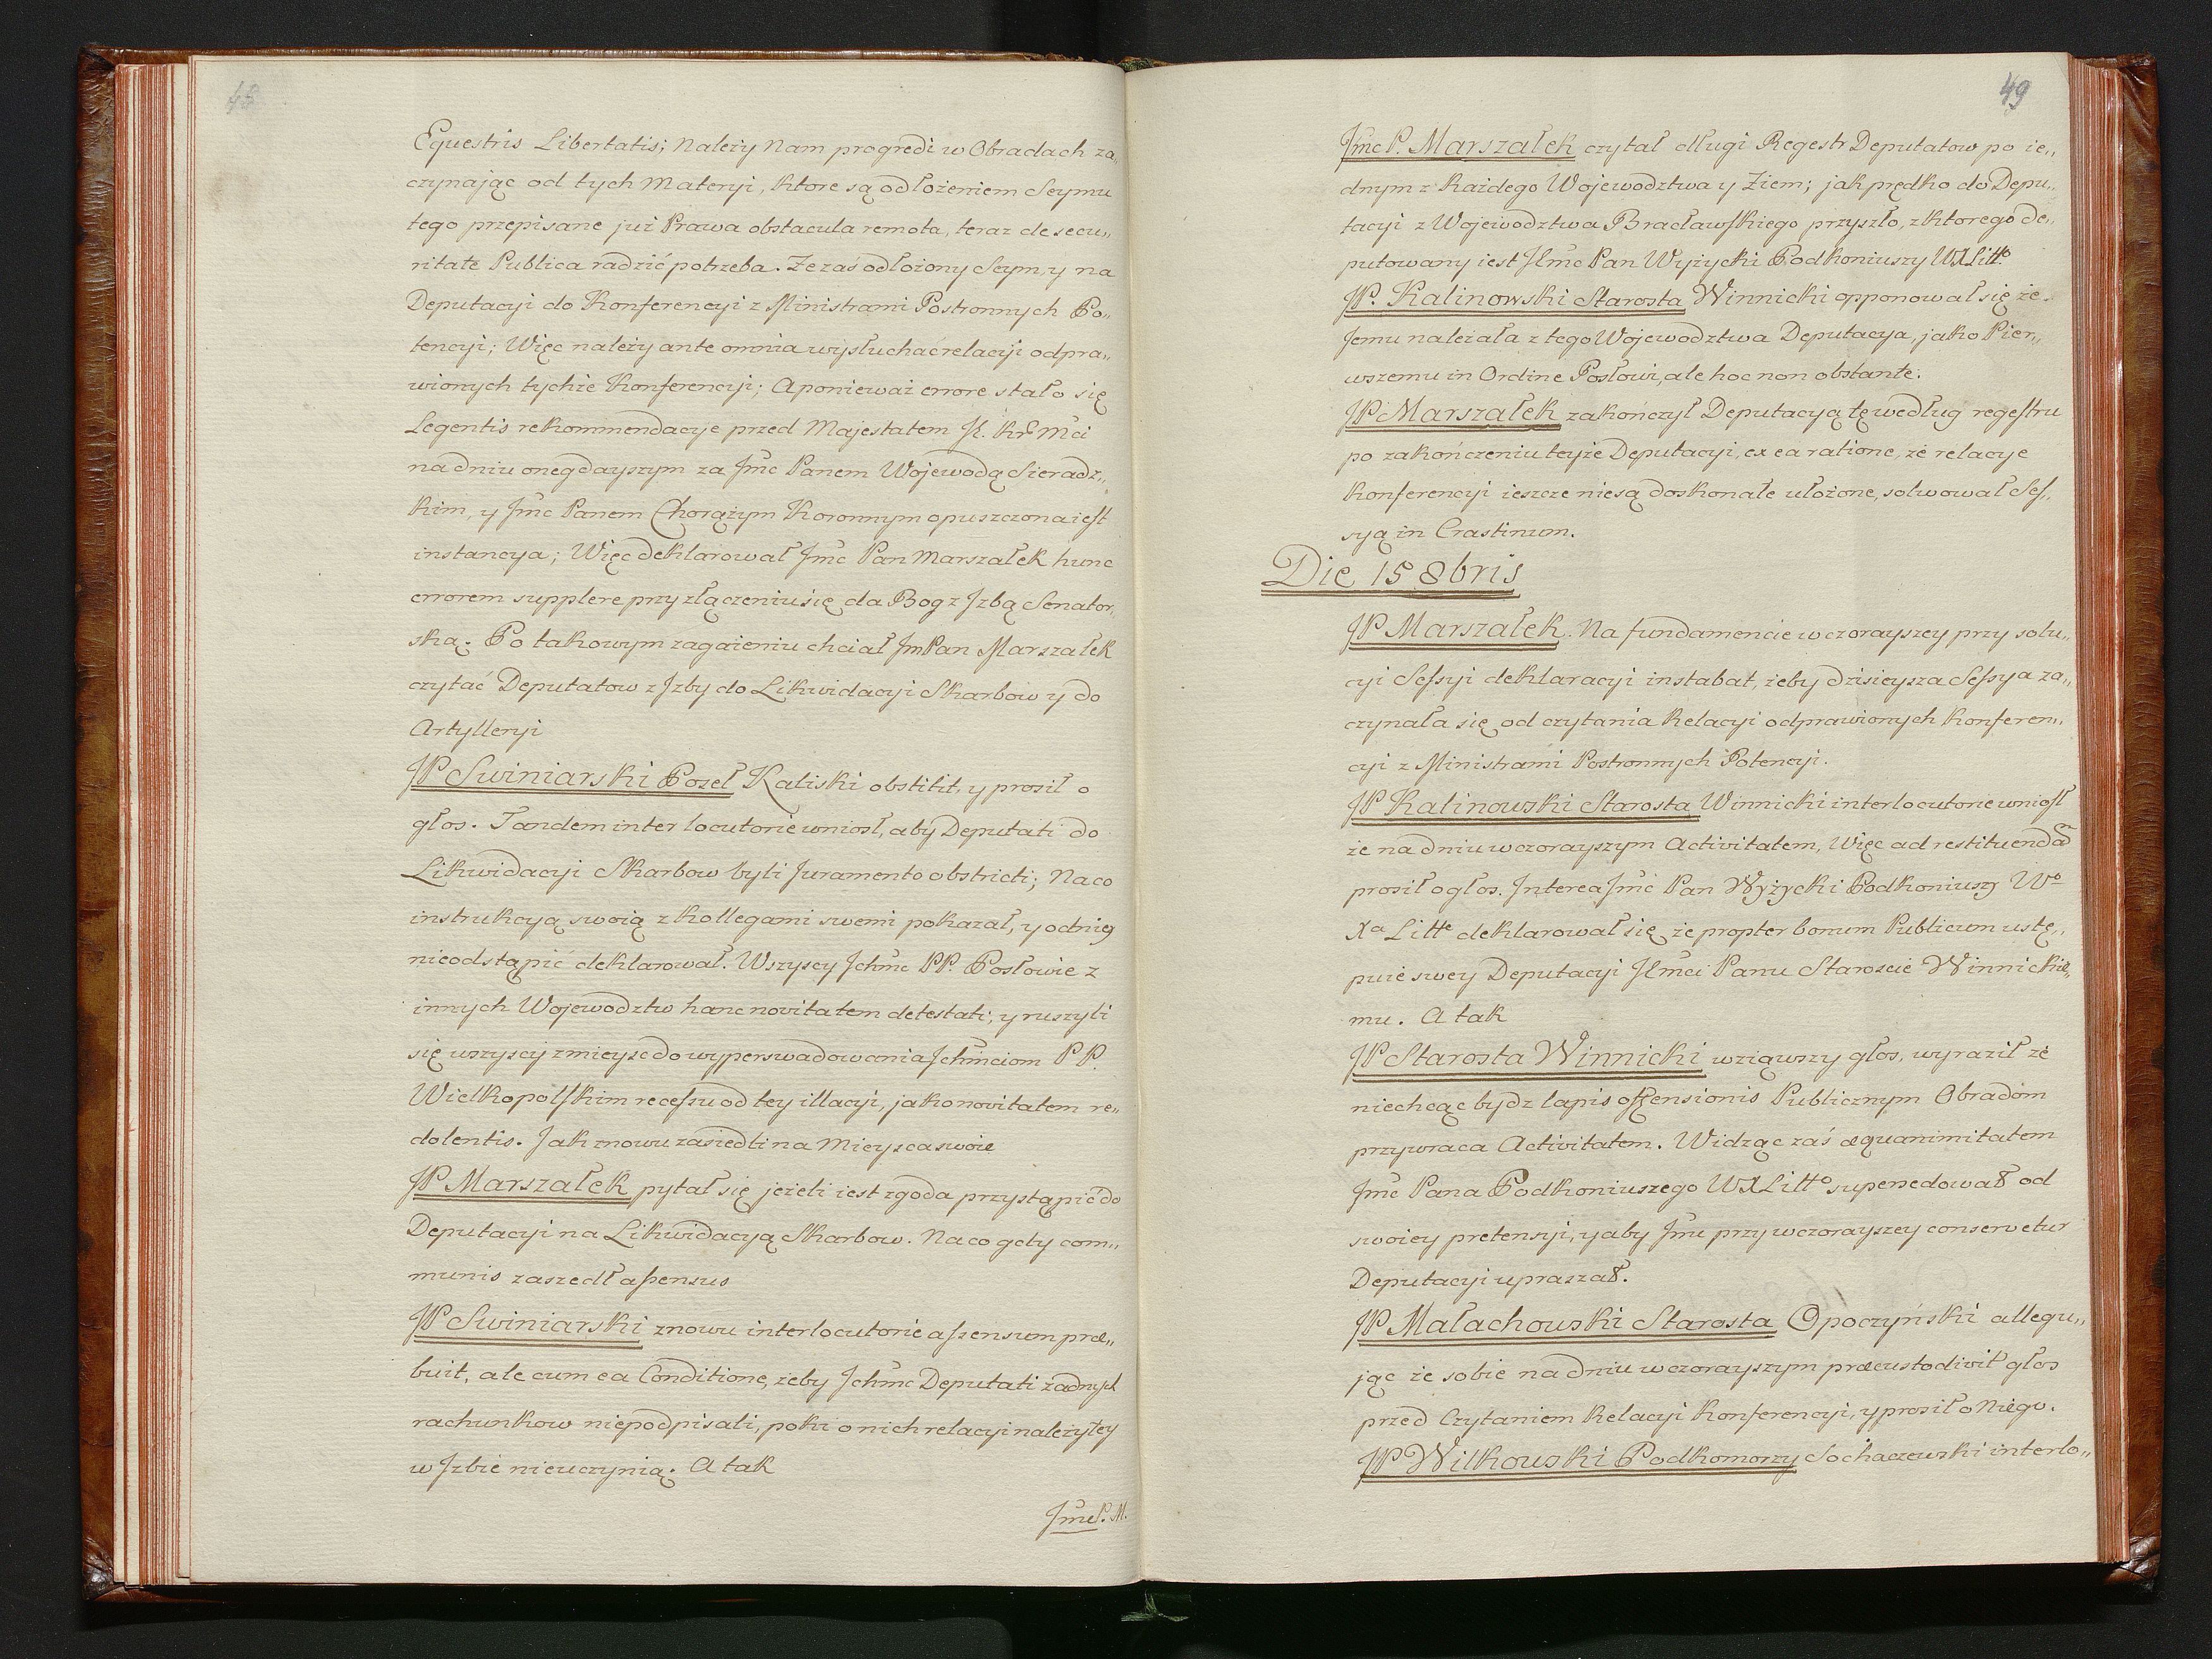 48
Equestris Libertatis; Należy Nam progredi w Obradach za„
czynaiąc od tych Materyi, ktore są odłożeniem Seymu
tego przepisane już Prawa obstacula remota, teraz de secu„
ritate Publica radzić potrzeba. Że zaś odłożony Seym, y na
Deputacyi do Konferencyi z Ministrami Postronnych Po„
tencyi; Więc należy ante omnia wysłuchać relacyi odpra„
wionych tychże Konferencyi; A ponieważ errore stało się
Legentis rekommendacye przed Majestatem JK. Kr Mci
na dniu onegdayszym za Jmc Panem Wojewodą Sieradz„
kim, y Jmc Panem Chorążym Koronnym opuszczona iest
instancya; Więc deklarował Jmc Pan Marszałek hunc
errorem supplere przy złączeniu się da Bog z Jzbą Senator„
ską. Po takowym zagaieniu chciał JmPan Marszałek
czytać Deputatow z Jzby do Likwidacyi Skarbow y do
Artylleryi
JP Swiniarski Poseł Kaliski obstitit, y prosił o
głos. Tandem interlocutorie wniosł, aby Deputati do
Likwidacyi Skarbow byli Juramento obstricti; Na co
instrukcyą swoią z kollegami swemi pokazał, y od niey
nieodstąpić deklarował. Wszyscy Jchmc PP. Posłowie z
innych Wojewodztw hanc novitatem detestati, y ruszyli
się wszyscy z mieysc do wyperswadowania Jchmciom PP.
Wielkopolskim recessu od tey illacyi, jako novitatem re„
dolentis. Jak znowu zasiedli na Mieysca swoie
JP Marszałek pytał się jeżeli iest zgoda przystąpić do
Deputacyi na Likwidacyą Skarbow. Na co gdy com„
munis zaszedł assensus
JP Swiniarski znowu interlocutorie assensum præ„
buit, ale cum ea Conditione, żeby Jchmc Deputati żadnych
rachunkow niepodpisali, poki o nich relacyi należytey
w Jzbie nieuczynią. A tak
Jmc P. M.
49
Jmc P. Marszałek czytał długi Regestr Deputatow po ie„
dnym z każdego Wojewodztwa y Ziem; jak prędko do Depu„
tacyi z Wojewodztwa Bracławskiego przyszło, z ktorego de„
putowany iest JEmc Pan Wyżycki Podkoniuszy WXLitto
JP. Kalinowski Starosta Winnicki opponował się że
Jemu należała z tego Wojewodztwa Deputacya, jako Pier„
wszemu in Ordine Posłowi, ale hoc non obstante.
JP Marszałek zakończył Deputacyą tę według regestru
po zakończeniu teyże Deputacyi, ex ea ratione, że relacye
Konferencyi ieszcze niesą doskonale ułożone, solwował Ses„
syą in Crastinum.
Die 15 8bris
JP Marszałek. Na fundamencie wczorayszey przy solu„
cyi Sessyi deklaracyi instabat, żeby dzisieysza Sessya za„
czynała się od czytania Relacyi odprawionych Konferen„
cyi z Ministrami Postronnych Potencyi.
JP Kalinowski Starosta Winnicki interlocutorie wniosł
że na dniu wczorayszym Activitatem, Więc ad restituendã
prosił o głos. Interea Jmć Pan Wyżycki Podkoniuszy Wo
Xa Litte deklarował się że propter bonum Publicum ustę„
puie swey Deputacyi JEmci Panu Staroscie Winnickie„
mu. A tak
JP Starosta Winnicki wziąwszy głos, wyraził że
niechcąc bydz lapis offensionis Publicznym Obradom
przywraca Activitatem. Widząc zaś æquanimitatem
Jmc Pana Podkoniuszego WXLitto supersedował od
swoiey pretensyi, y aby Jmc przy wczorayszey conservetur
Deputacyi upraszał.
JP Małachowski Starosta Opoczyński allegu„
jąc że sobie na dniu wczorayszym præcustodivit głos
przed Czytaniem Relacyi Konferencyi, y prosił o Niego.
JP Wilkowski Podkomorzy Sochaczewski interlo„